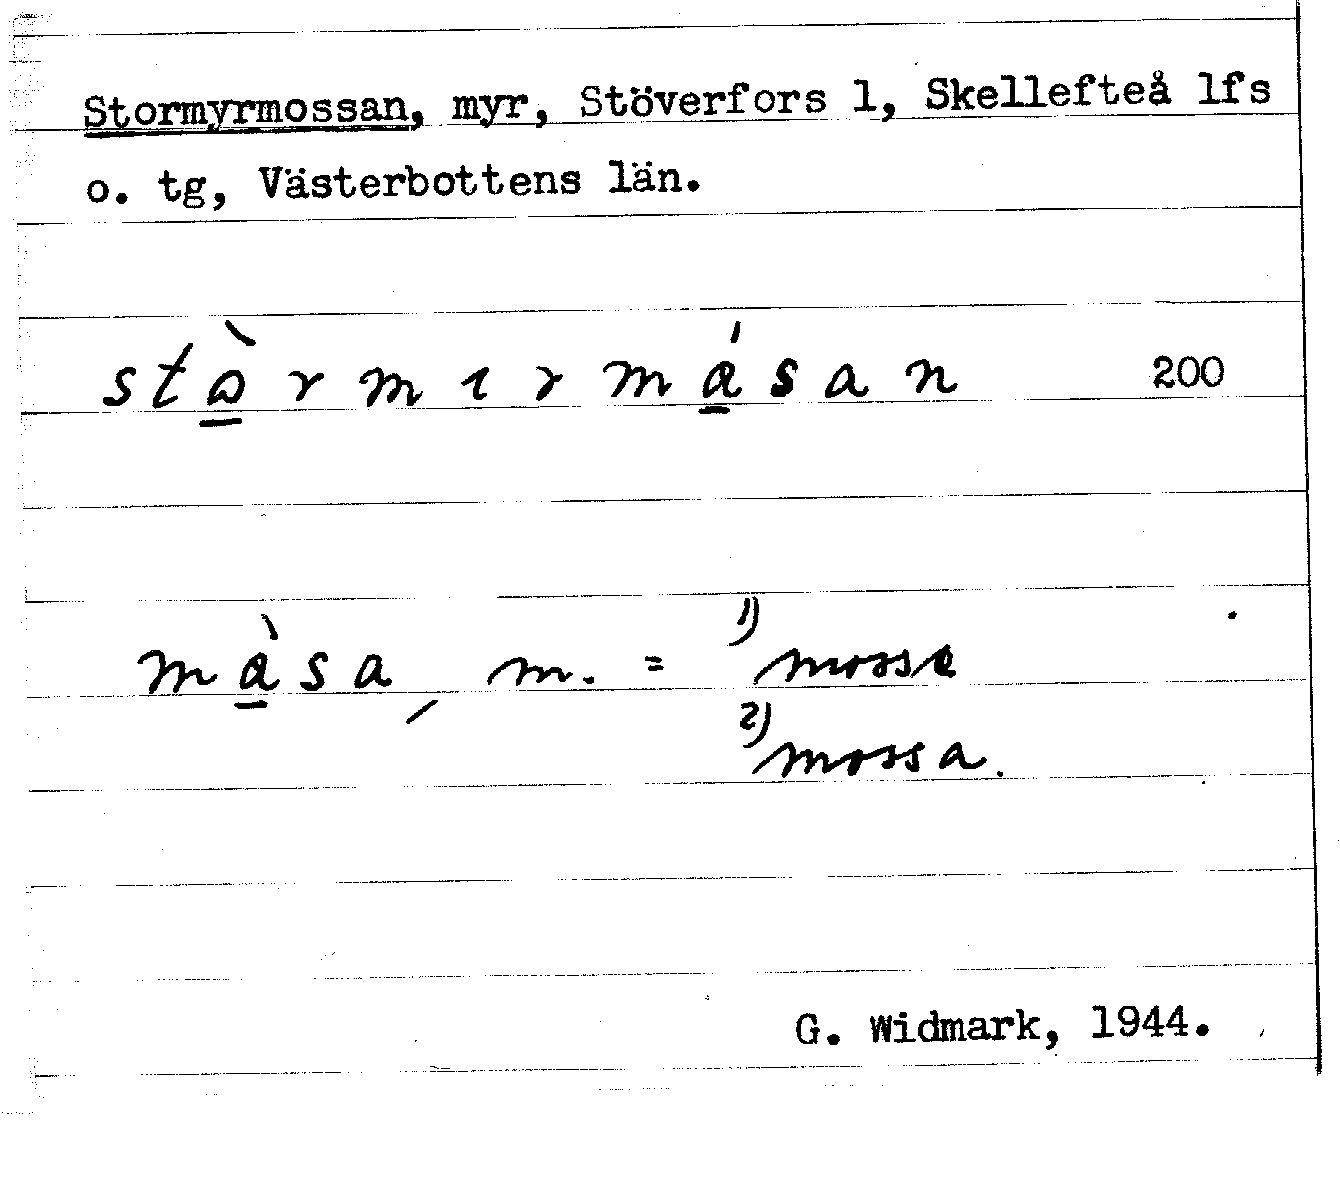 Stormyrmossan, myr, Stöverfors 1, Skellefteå lfs
o. tg, Västerbottens län.
stɷ̠̀rmɩrmá̠san 200
mà̠sa, m. = 1) mosse
2) mossa.
G. Widmark, 1944.